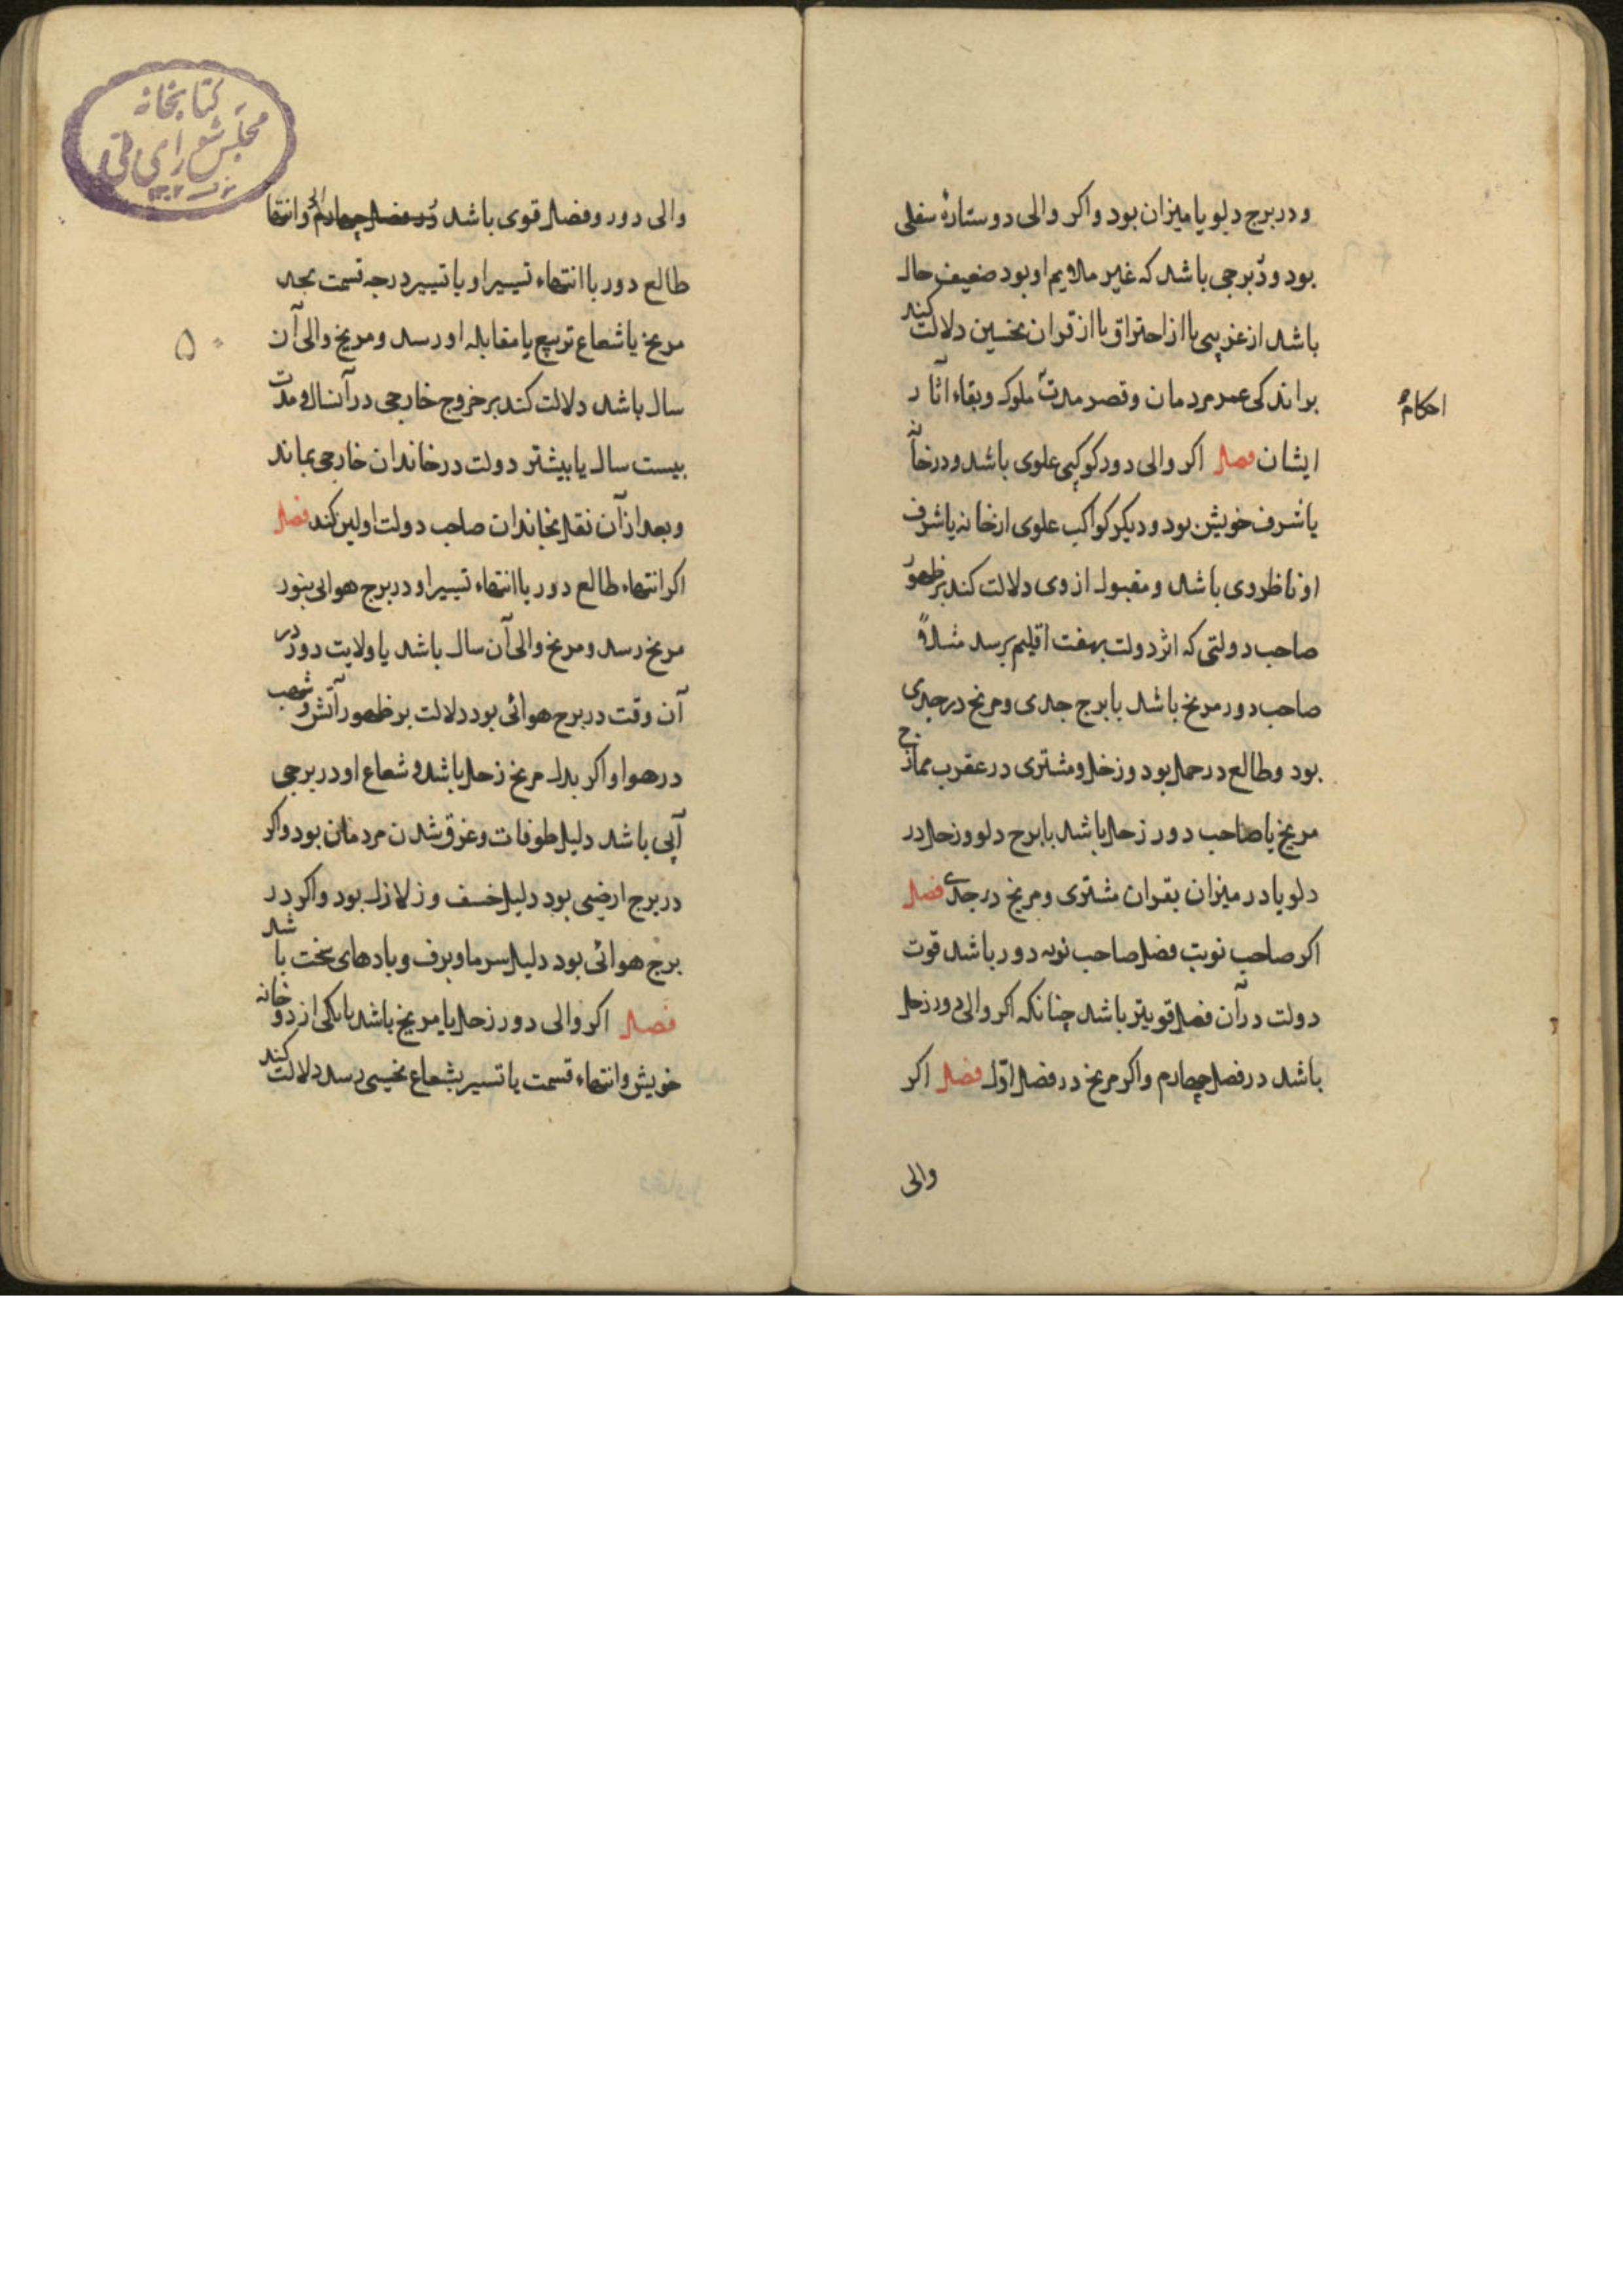 و در برج دلو یا میزان بود و اکر والی دو ستارهٔ سفلی
بود و در برجی باشد که غیر ملایم او بود ضعیف حال
باشد از غریبی یا از احتراق یا از قران نحسین دلالت کند
بر اندکی عمر مردمان و قصر مدت ملوک و بقاء آثار
احکام
ایشان فصل اکر والی دور کوکبی علوی باشد و در خانه
یا شرف خویش بود و دیکر کواکب علوی از خانه یا شرف
او ناظر وی باشد و مقبول از وی دلالت کند بر ظهور
صاحب دولتی که اثر دولت بهفت اقلیم برسد مثلاً
صاحب دور مریخ باشد با برج جدی و مریخ در جدی
بود و طالع در حمل بود و زحل و مشتری در عقرب ممازج
مریخ یا صاحب دور زحل باشد با برج دلو و زحل در
دلو یا در میزان بقران مشتری و مریخ در جدی فصل
اکر صاحب نوبت فصل صاحب نوبه دور باشد قوت
دولت در آن فصل قویتر باشد چنانکه اکر والی دور زحل
باشد در فصل چهارم و اکر مریخ در فصل اوّل فصل اکر
والی
کتابخانه
مجلس شورای ملی
والی دور و فصل قوی باشد در فصل چهارم و انتها
طالع دور با انتهاء تسییر او یا تسییر درجه قسمت بجد
۵۰
مریخ یا شعاع تربیع یا مقابله او رسد و مریخ والی آن
سال باشد دلالت کند بر خروج خارجی در آنسال و مدت
بیست سال یا بیشتر دولت در خاندان خارجی بماند
و بعد از آن نقل بخاندان صاحب دولت اولین کند فصل
اکر انتهاء طالع دور با انتهاء تسییر او در برج هوایی بنور
مریخ رسد و مریخ والی آن سال باشد یا ولایت دور در
آن وقت در برج هوائی بود دلالت بر ظهور آتش و شهب
در هوا و اکر بدل مریخ زحل باشد و شعاع او در برجی
آبی باشد دلیل طوفات و غرق شدن مردمان بود و اکر
در برج ارضی بود دلیل خسف و زلازل بود و اکر در
برج هوائی بود دلیل سرما و برف و بادهای سخت باشد
فصل اکر والی دور زحل یا مریخ باشد با یکی از دو خانه
خویش و انتهاء قسمت یا تسییر بشعاع نحسی رسد دلالت کند